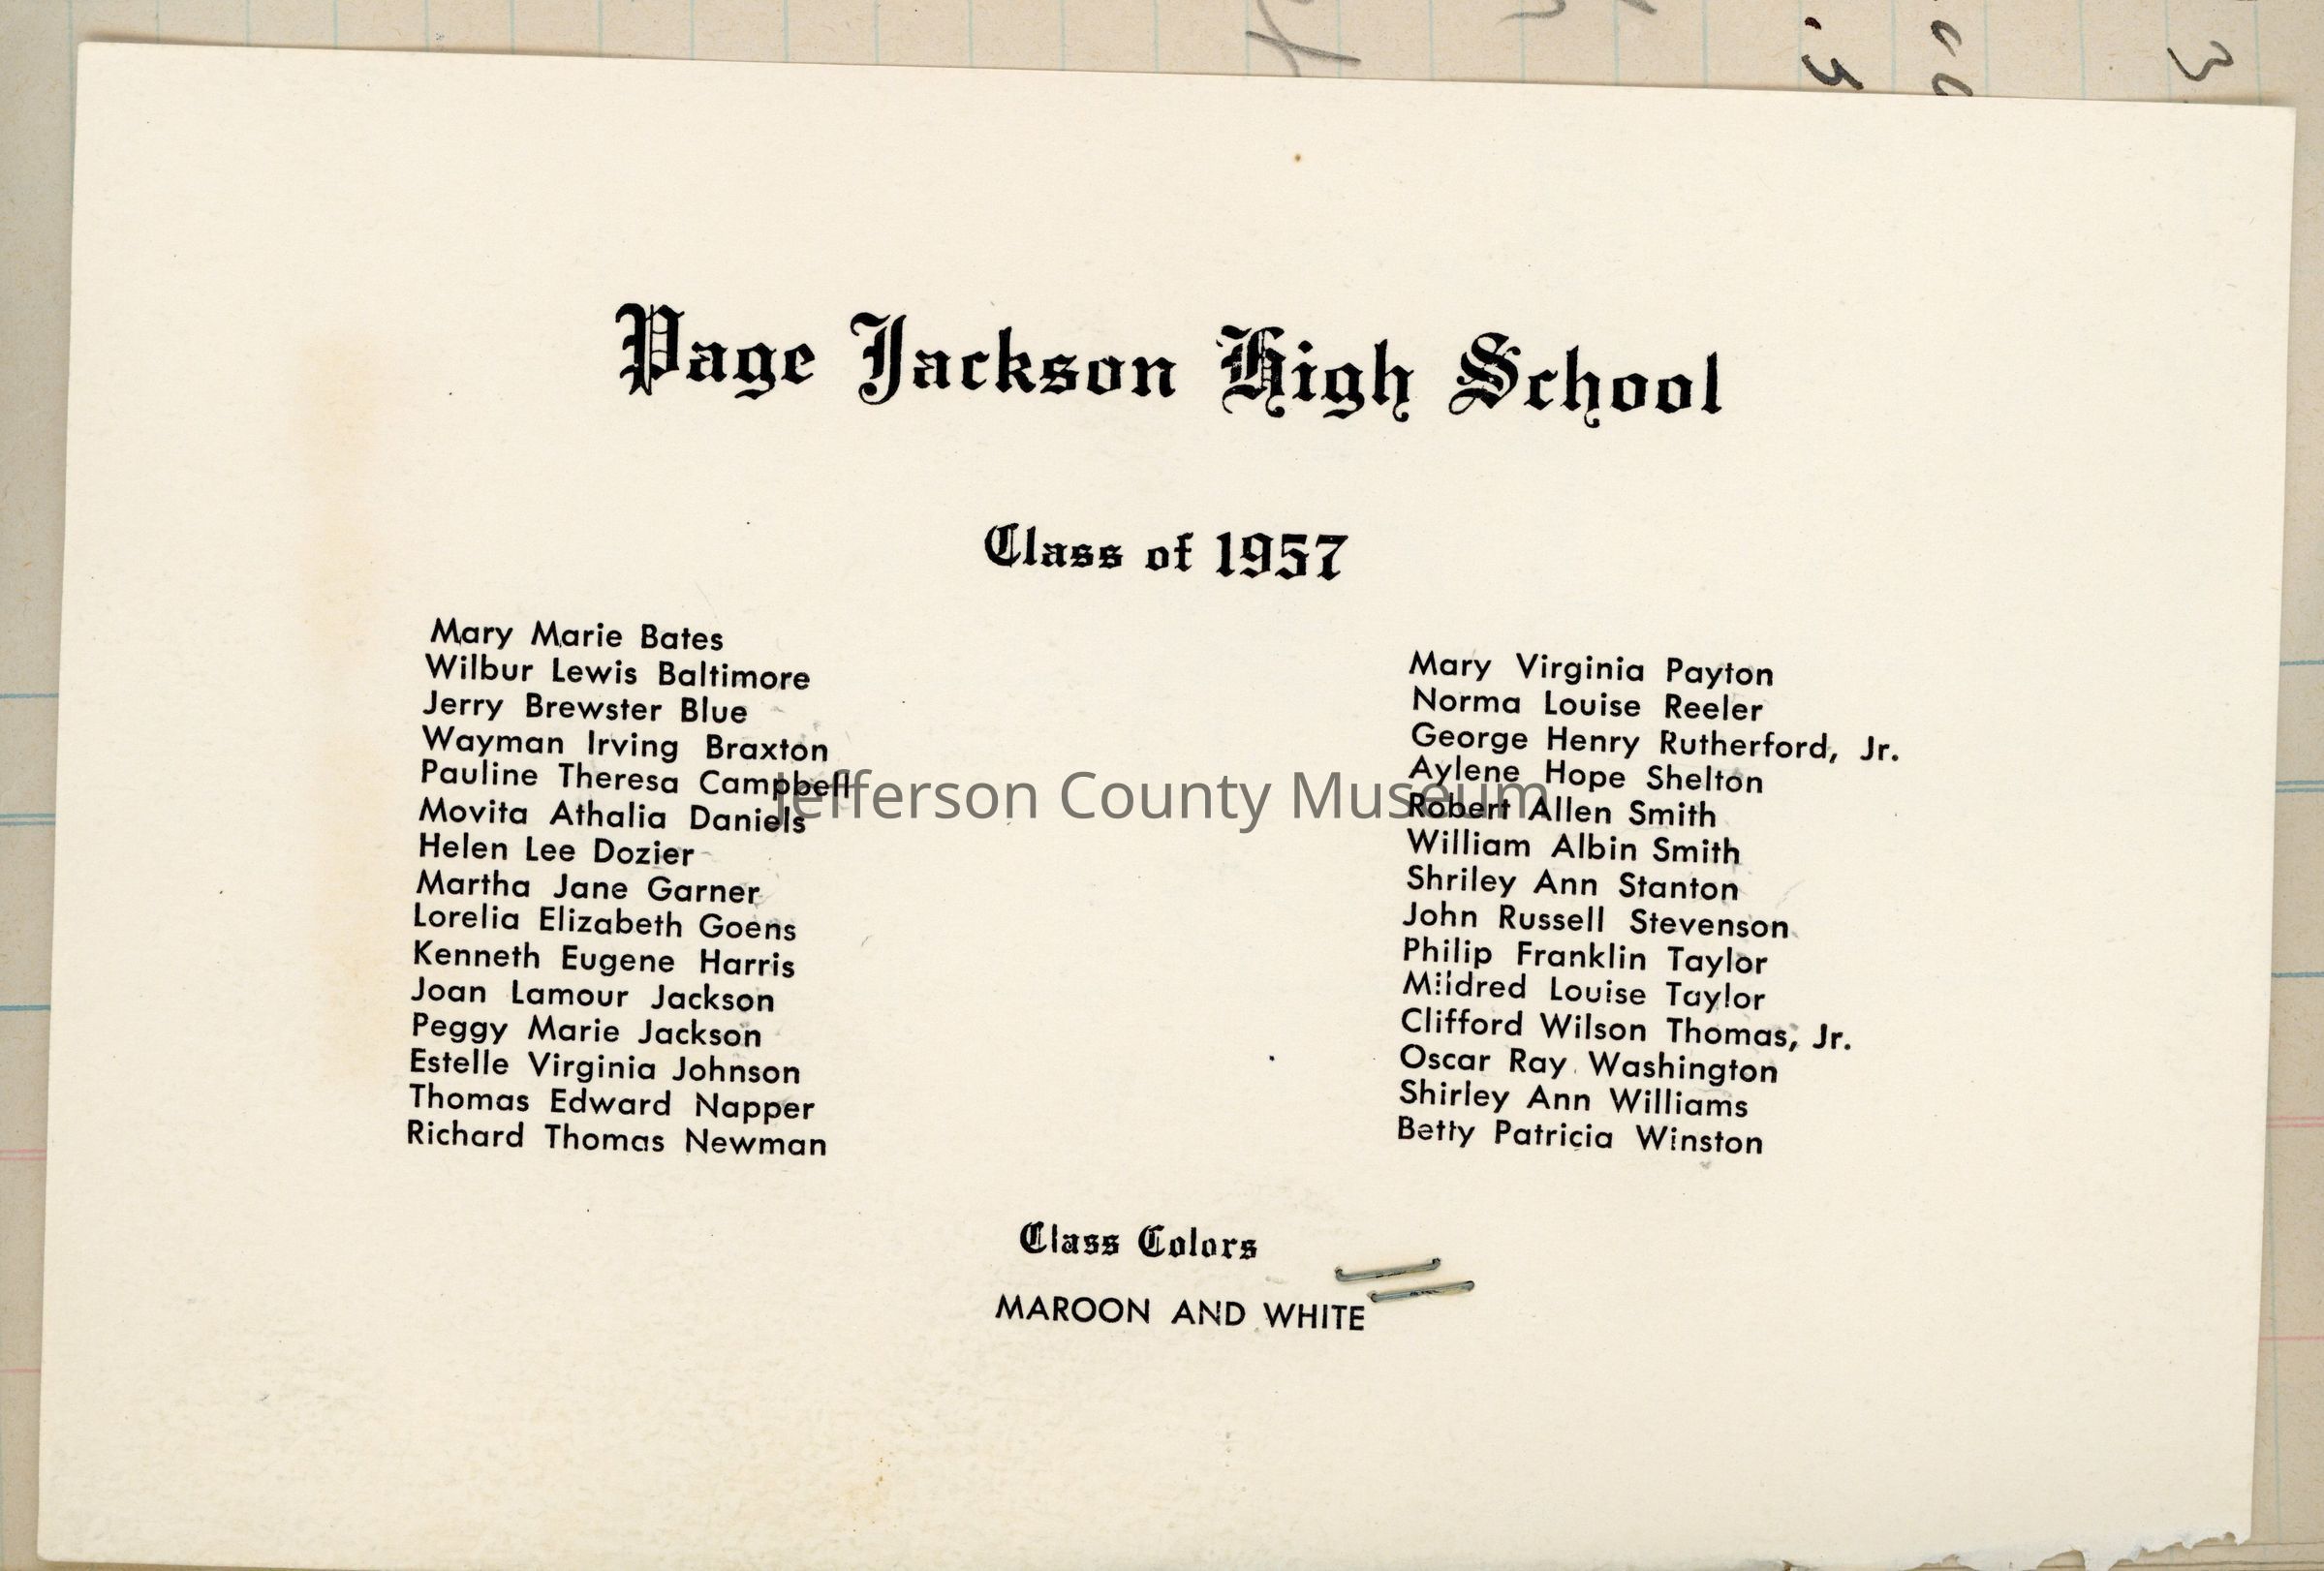 Page Jackson High School
Class of 1957
Mary Marie Bates
Wilbur Lewis Baltimore
Jerry Brewster Blue
Wayman Irving Braxton
Pauline Theresa Campbell
Movita Athalia Daniels
Helen Lee Dozier
Martha Jane Garner
Lorelia Elizabeth Goens
Kenneth Eugene Harris
Joan Lamour Jackson
Peggy Marie Jackson
Estelle Virginia Johnson
Thomas Edward Napper
Richard Thomas Newman
Mary Virginia Payton
Norma Louise Reeler
George Henry Rutherford, Jr.
Aylene Hope Shelton
Robert Allen Smith
William Albin Smith
Shriley Ann Stanton
John Russell Stevenson
Philip Franklin Taylor
Mildred Louise Taylor
Clifford Wilson Thomas, Jr.
Oscar Ray Washington
Shirley Ann Williams
Betty Patricia Winston
Class Colors
MAROON AND WHITE
Jefferson County Museum